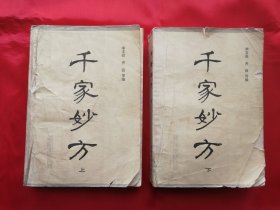 千家妙方
上
千家妙方
下